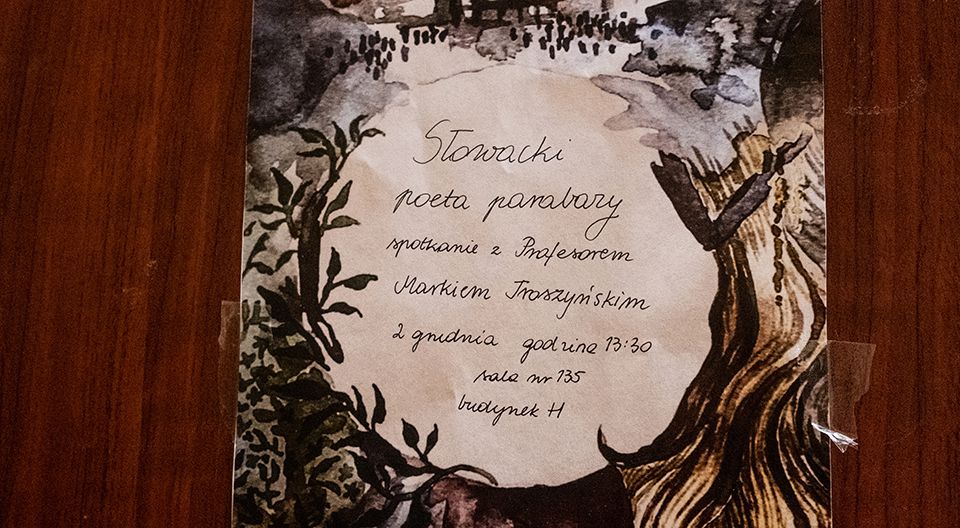 Słowacki
poeta parabazy
spotkanie z Profesorem
Markiem Troszyńskim
2 grudnia godzina 13:30
sala nr 135
budynek H